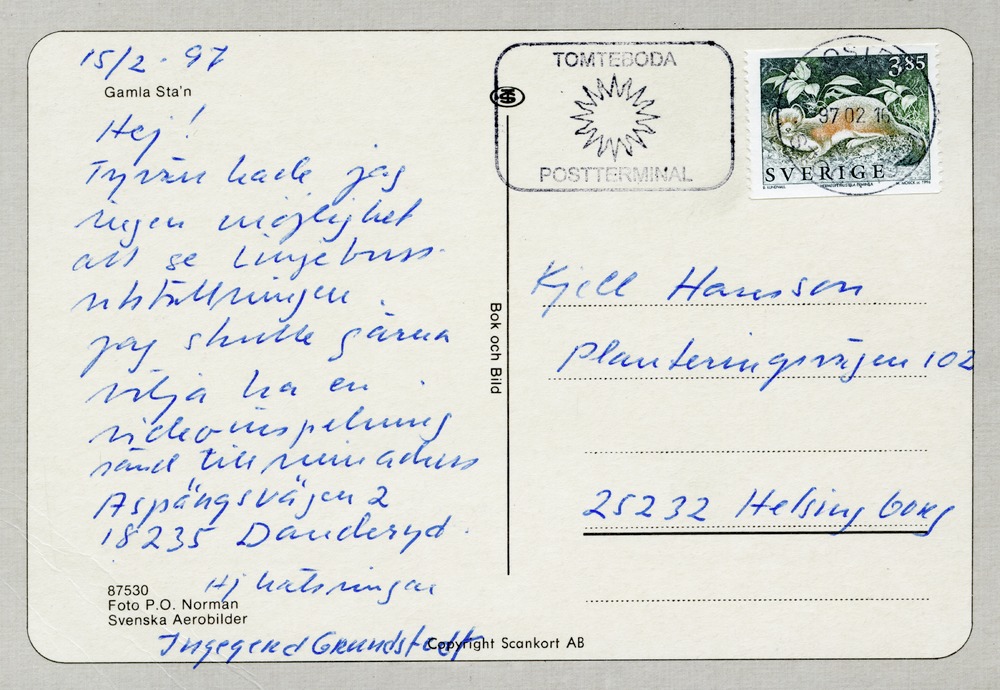 15/2 - 97
Gamla Sta'n
Hej!
Tyvärr hade jag
ingen möjlighet
att se Linjebuss-
utställningen.
jag skulle gärna
vilja ha en
videoinspelning
sänd till min adress
Aspängsvägen 2
18235 Danderyd.
Hj hälsningar
Ingegerd Grundstedt
87530
Foto P.O. Norman
Svenska Aerobilder
Copyright Scankort AB
Bok och Bild
TOMTEBODA
POSTTERMINAL
3.85
97 02 16
SVERIGE
Kjell Hansson
Planteringsvägen 102
25232 Helsingborg